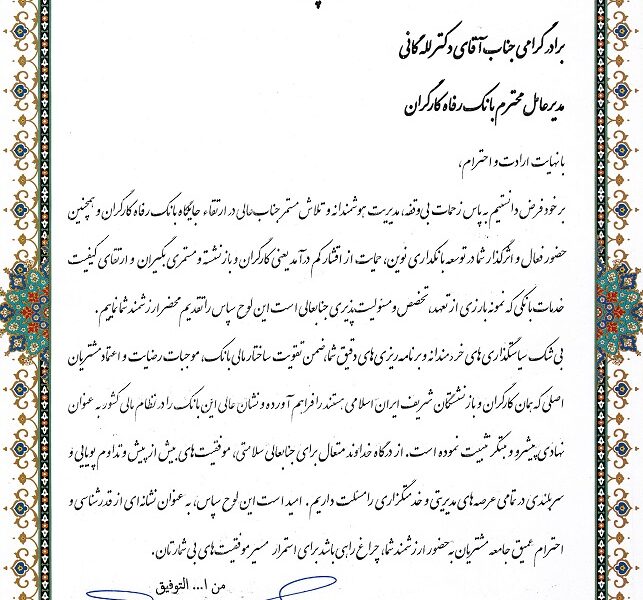 برادر گرامی جناب آقای دکتر لله گانی
مدیرعامل محترم بانک رفاه کارگران
با نهایت ارادت و احترام،
بر خود فرض دانستیم به پاس زحمات بی وقفه، مدیریت هوشمندانه و تلاش مستمر جناب عالی در ارتقاء جایگاه بانک رفاه کارگران و همچنین
حضور فعال و اثرگذار شما در توسعه بانکداری نوین، حمایت از اقشار کم درآمد یعنی کارگران و بازنشسته و مستمری بگیران و ارتقای کیفیت
خدمات بانکی که نمونه بارزی از تعهد، تخصص و مسئولیت پذیری جنابعالی است این لوح سپاس را تقدیم محضر ارزشمند شما نماییم.
بی شک سیاستگذاری های خردمندانه و برنامه ریزی های دقیق شما، ضمن تقویت ساختار مالی بانک، موجبات رضایت و اعتماد مشتریان
اصلی که همان کارگران و بازنشستگان شریف ایران اسلامی هستند را فراهم آورده و نشان عالی این بانک را در نظام مالی کشور به عنوان
نهادی پیشرو و مبتکر تثبیت نموده است. از درگاه خداوند متعال برای جنابعالی سلامتی، موفقیت های بیش از پیش و تداوم پویایی و
سربلندی در تمامی عرصه های مدیریتی و خدمتگزاری را مسئلت داریم. امید است این لوح سپاس، به عنوان نشانه ای از قدرشناسی و
احترام عمیق جامعه مشتریان به حضور ارزشمند شما، چراغ راهی باشد برای استمرار مسیر موفقیت های بی شمارتان.
من ا... التوفیق